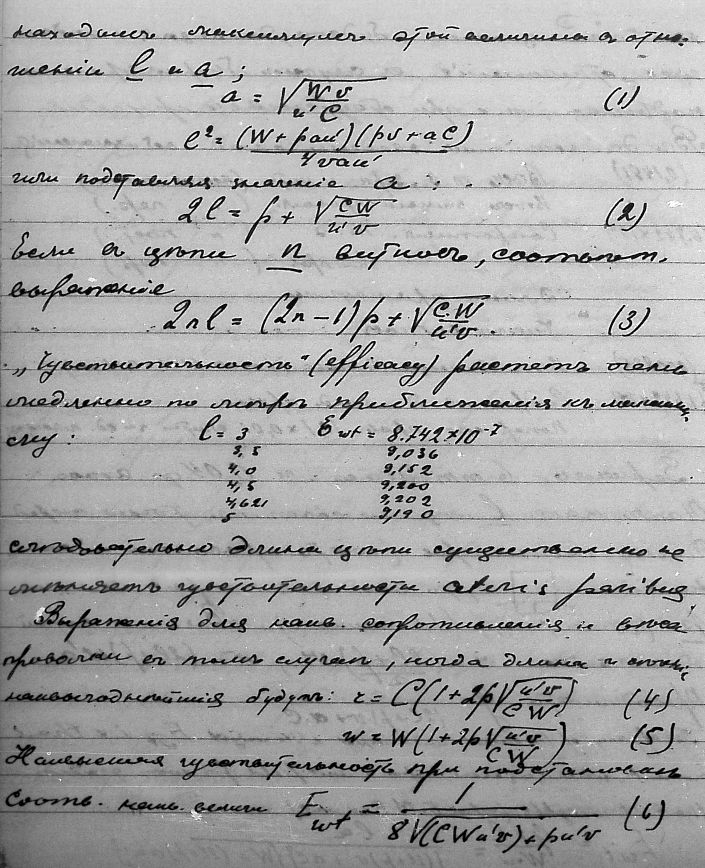 находимъ максимумъ этой величины въ отно-
шеніи l и a ;
a = √(Wv / u'C) (1)
l² = (W + pau')(pv + aC) / 4vau'
или подставляя значеніе a :
2l = p + √(CW / u'v) (2)
Если въ цѣпи n витковъ, соотвѣт.
выраженіе
2nl = (2n-1)p + √(C.W / u'v) (3)
„Чувствительность" (efficacy) растетъ очень
медленно по мѣрѣ приближенія къ максиму-
му : l = 3 E wt = 8.742×10⁻⁷
3,5 9,036
4,0 9,152
4,5 9,200
4,621 9,202
5 9,190
слѣдовательно длина цѣпи существенно не
мѣняетъ чувствительности ceteris paribus
Выраженія для наив. сопротивленія и вѣса
проволки въ томъ случаѣ, когда длина и
наивыгоднѣйшія будутъ: r = C(1+2p√(u'v / CW)) (4)
w = W(1+2p√(u'v / CW)) (5)
Наивысшая чувствительность при подстановкѣ
соотв. наив. велич E wt = 1 / 8√(CWu'v) + pu'v (6)